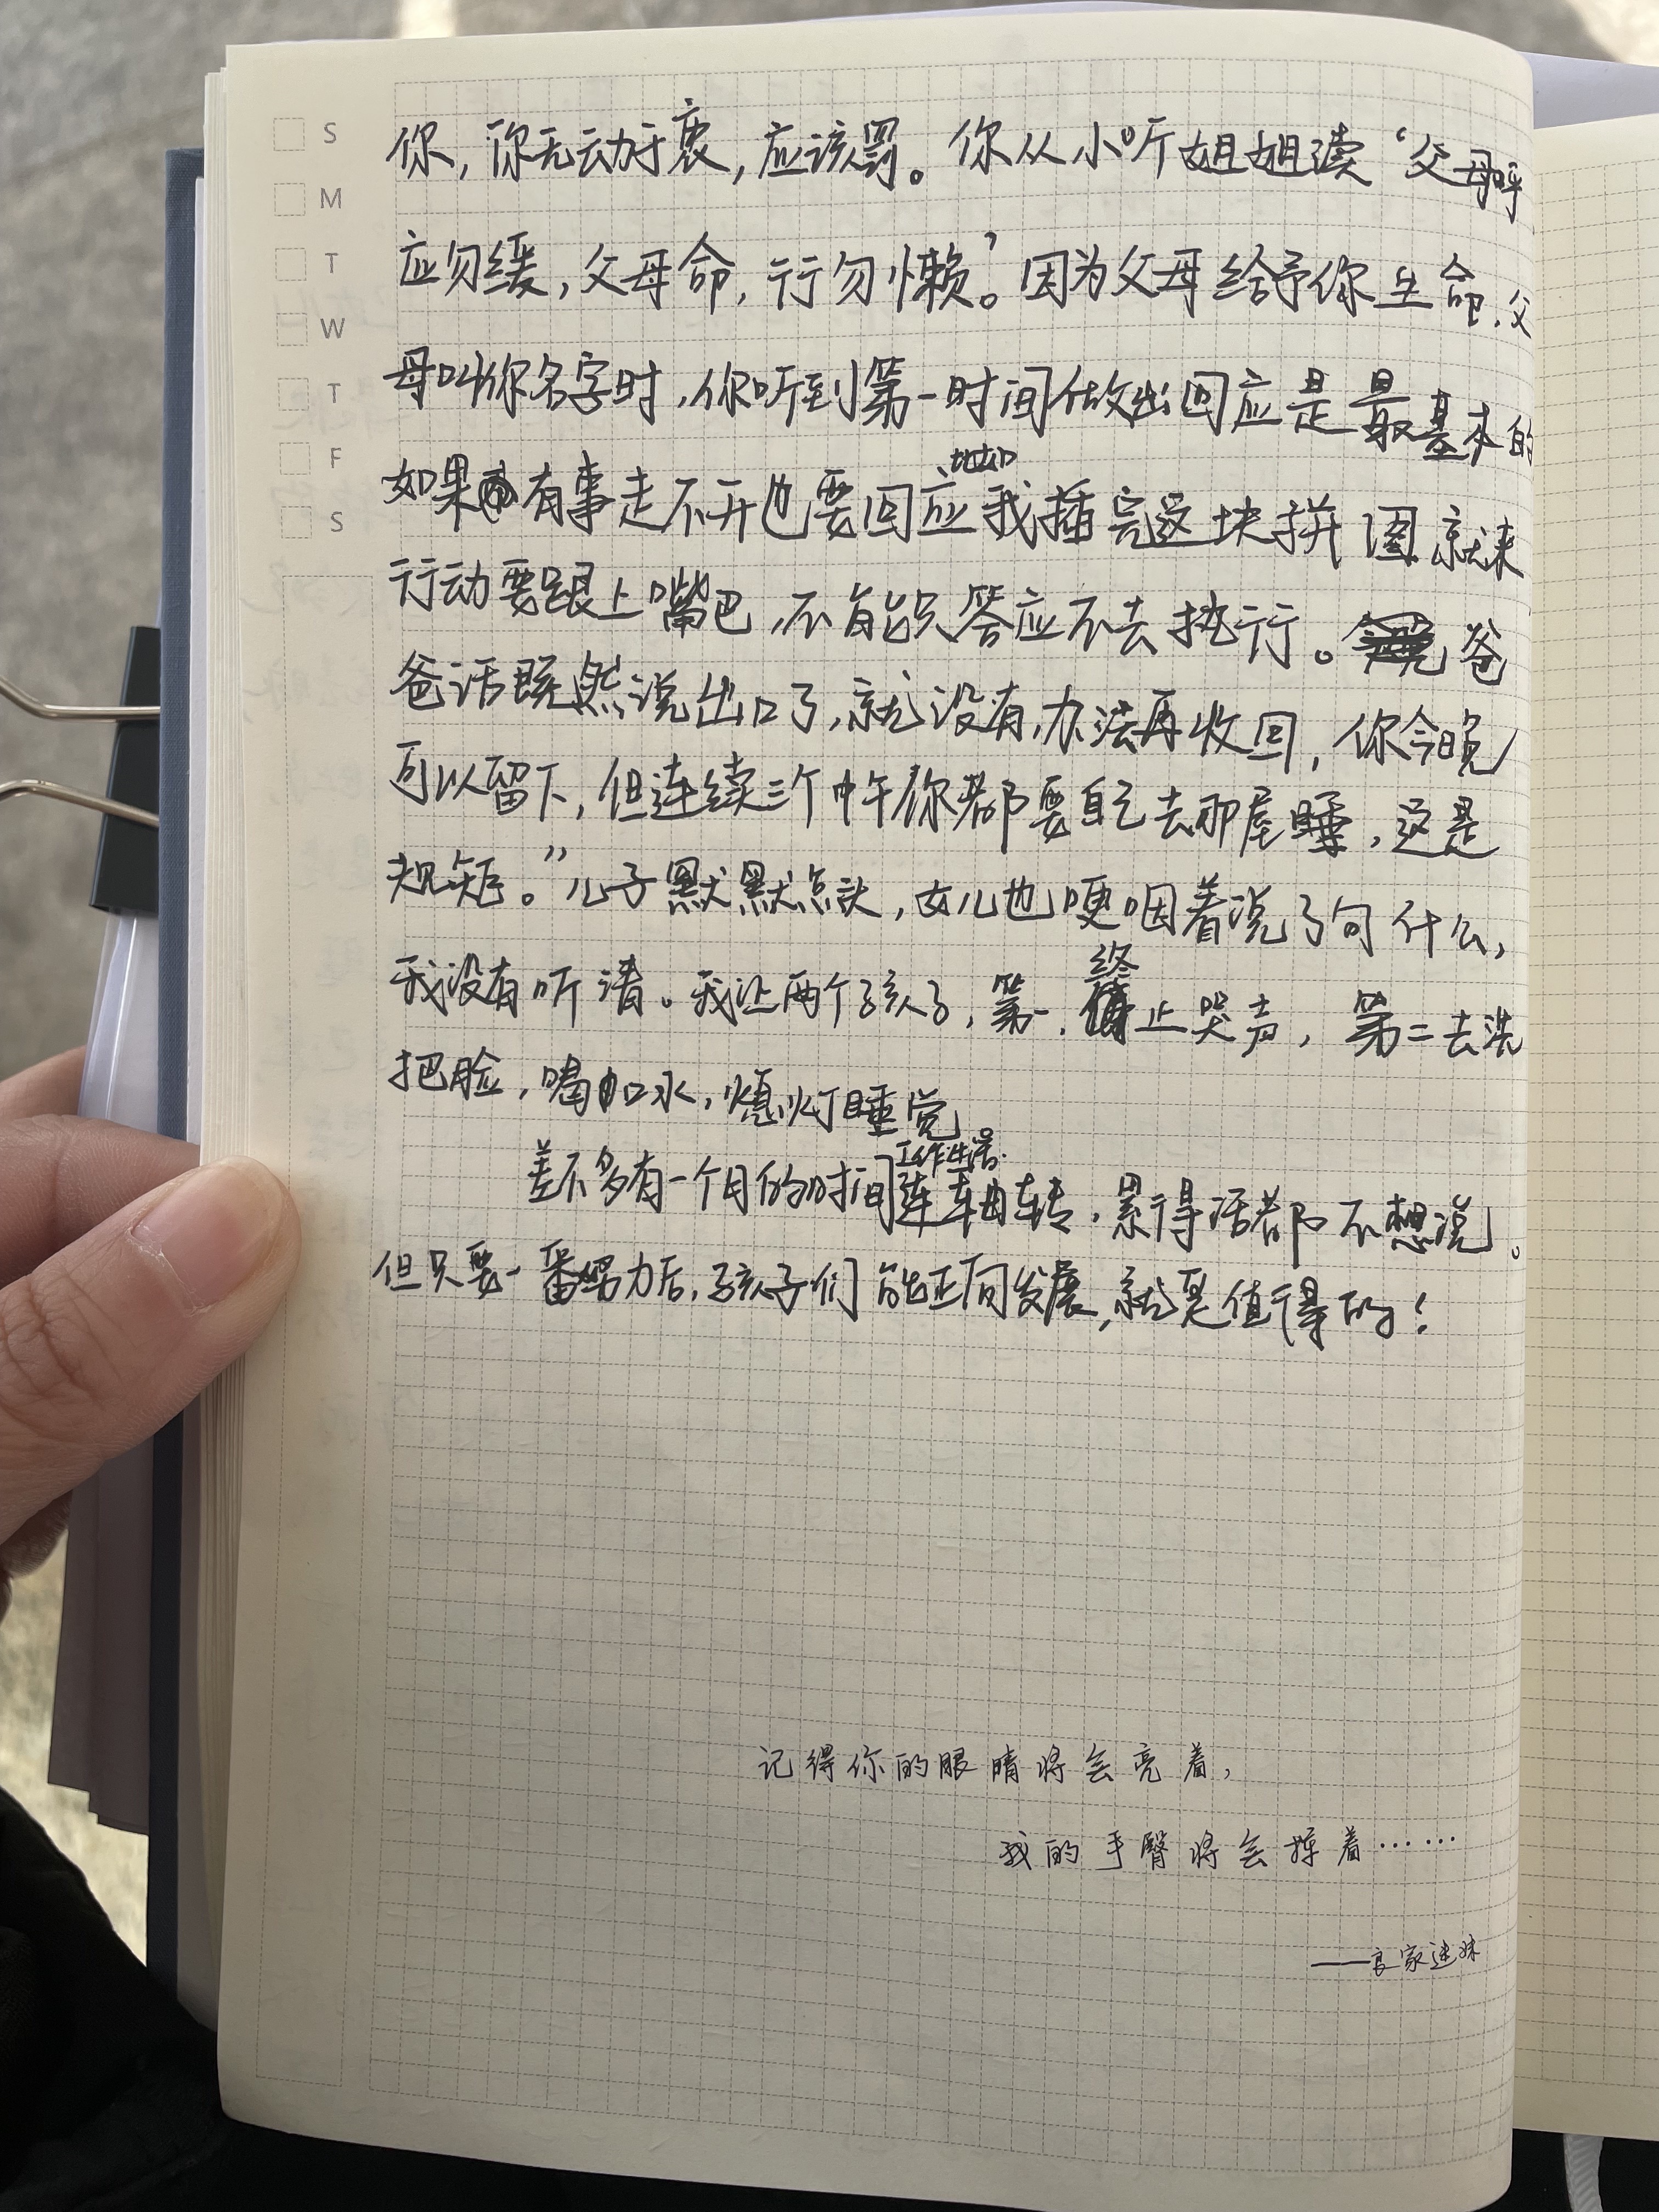 S
M
T
W
T
F
S
你，你无动于衷，应该罚。你从小听姐姐读‘父母呼
应勿缓，父母命，行勿懒’。因为父母给予你生命，父
母叫你名字时，你听到第一时间做出回应是最基本的
如果有事走不开也要回应比如我插完这块拼图就来
行动要跟上嘴巴，不能只答应不去执行。爸
爸话既然说出口了，就没有办法再收回，你今晚
可以留下，但连续三个中午你都要自己去那屋睡，这是
规矩。”儿子默默点头，女儿也哽咽着说了句什么，
我没有听清。我让两个孩子，第一，终止哭声，第二去洗
把脸，喝口水，熄灯睡觉
差不多有一个月的时间工作生活连轴转，累得话都不想说。
但只要一番努力后，孩子们能正向发展，就是值得的！
记得你的眼睛将会亮着，
我的手臂将会挥着……
——良家迷妹